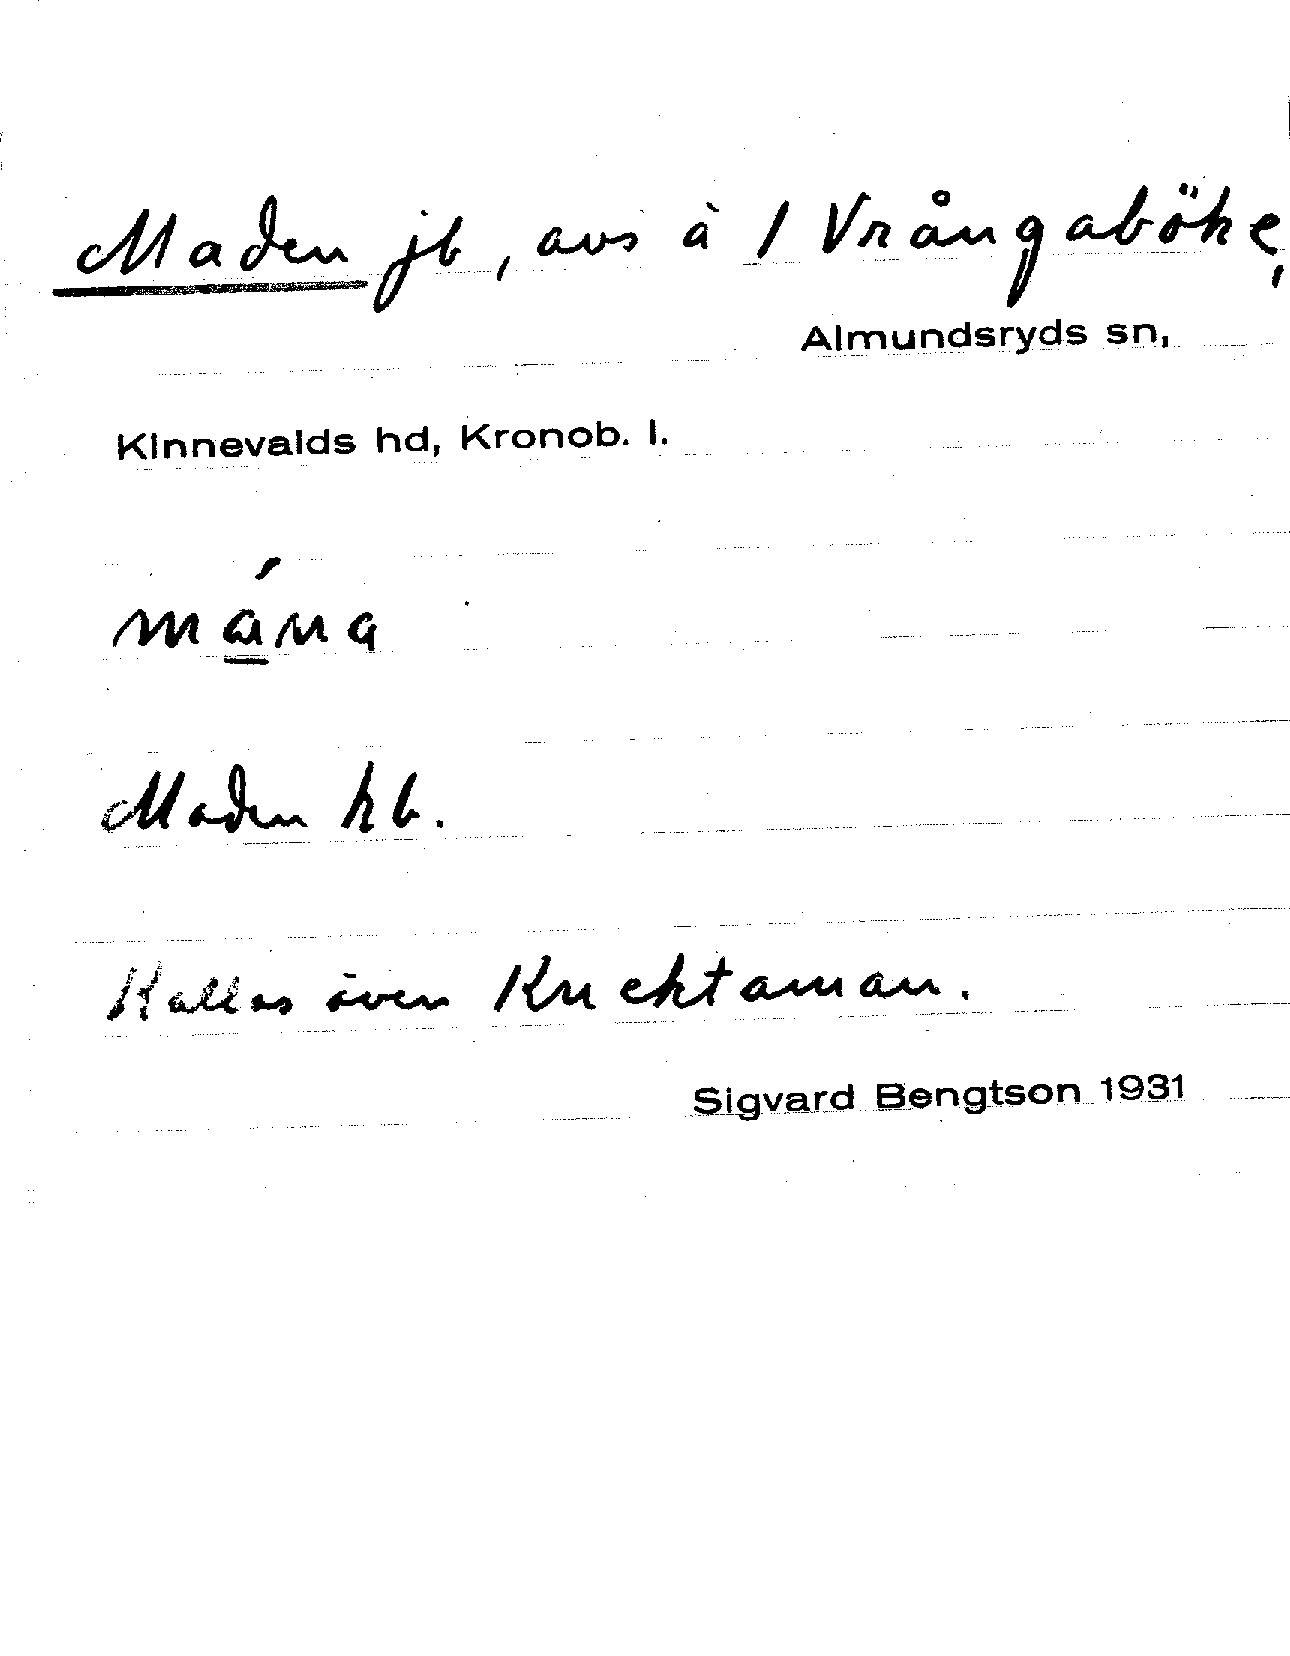 Maden jb, avs à 1 Vrångaböke,
Almundsryds sn,
Kinnevalds hd, Kronob. l.
mána
Maden hb.
Kallas även Knektaman.
Sigvard Bengtson 1931